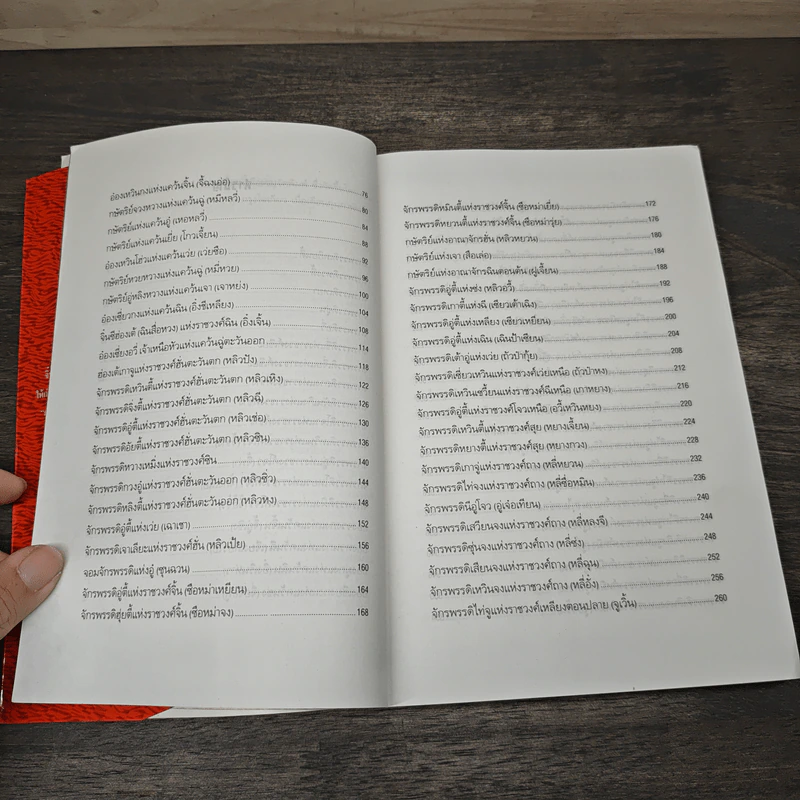 อ๋องเหวินกงแห่งแคว้นจิ้น (จี้ฉงเอ่อ) 76
กษัตริย์จวงหวางแห่งแคว้นฉู่ (หมี่หลวี่) 80
กษัตริย์แห่งแคว้นอู๋ (เหอหลวี่) 84
กษัตริย์แห่งแคว้นเยี่ย (โกวเจี้ยน) 88
อ๋องเหวินโฮ่วแห่งแคว้นเว่ย (เว่ยซือ) 92
กษัตริย์หวยหวางแห่งแคว้นฉู่ (หมี่หวย) 96
กษัตริย์อู่หลิงหวางแห่งแคว้นเจา (เจาหย่ง) 100
อ๋องเซี่ยวกงแห่งแคว้นฉิน (อิ๋งซีเหลียง) 104
จิ๋นซีฮ่องเต้ (ฉินสื่อหวง) แห่งราชวงศ์ฉิน (อิ๋งเจิ้น) 108
อ๋องเซี่ยงอวี่ เจ้าเหนือหัวแห่งแคว้นฉู่ตะวันออก 114
ฮ่องเต้เกาจู่แห่งราชวงศ์ฮั่นตะวันตก (หลิวปัง) 118
จักรพรรดิเหวินตี้แห่งราชวงศ์ฮั่นตะวันตก (หลิวเหิง) 122
จักรพรรดิจิ่งตี้แห่งราชวงศ์ฮั่นตะวันตก (หลิวฉี) 126
จักรพรรดิอู่ตี้แห่งราชวงศ์ฮั่นตะวันตก (หลิวเช่อ) 130
จักรพรรดิอัยตี้แห่งราชวงศ์ฮั่นตะวันตก (หลิวซิน) 136
จักรพรรดิหวางเหมิ่งแห่งราชวงศ์ซิน 140
จักรพรรดิกวงอู่แห่งราชวงศ์ฮั่นตะวันออก (หลิวซิ่ว) 144
จักรพรรดิหลิงตี้แห่งราชวงศ์ฮั่นตะวันออก (หลิวหง) 148
จักรพรรดิอู่ตี้แห่งเว่ย (เฉาเชา) 152
จักรพรรดิเจาเลี่ยะแห่งราชวงศ์ฮั่น (หลิวเป้ย) 156
จอมจักรพรรดิแห่งอู๋ (ซุนฉวน) 160
จักรพรรดิอู่ตี้แห่งราชวงศ์จิ้น (ซือหม่าเหยียน) 164
จักรพรรดิฮุ่ยตี้แห่งราชวงศ์จิ้น (ซือหม่าจง) 168
จักรพรรดิหมินตี้แห่งราชวงศ์จิ้น (ซือหม่าเยี่ย) 172
จักรพรรดิหยวนตี้แห่งราชวงศ์จิ้น (ซือหม่ารุ่ย) 176
กษัตริย์แห่งอาณาจักรฮั่น (หลิวหยวน) 180
กษัตริย์แห่งเจา (สือเล่อ) 184
กษัตริย์แห่งอาณาจักรฉินตอนต้น (ฝูเจี้ยน) 188
จักรพรรดิอู่ตี้แห่งซ่ง (หลิวอวี้) 192
จักรพรรดิเกาตี้แห่งฉี (เซียวเต้าเฉิง) 196
จักรพรรดิอู่ตี้แห่งเหลียง (เซียวเหยี่ยน) 200
จักรพรรดิอู่ตี้แห่งเฉิน (เฉินป้าเซียน) 204
จักรพรรดิเต้าอู่แห่งเว่ย (ถัวป๋ากุ้ย) 208
จักรพรรดิเซี่ยวเหวินแห่งราชวงศ์เว่ยเหนือ (ถัวป๋าหง) 212
จักรพรรดิเหวินเซวี้ยนแห่งราชวงศ์ฉีเหนือ (เกาหยาง) 216
จักรพรรดิอู่ตี้แห่งราชวงศ์โจวเหนือ (อวี้เหวินหยง) 220
จักรพรรดิเหวินตี้แห่งราชวงศ์สุย (หยางเจี้ยน) 224
จักรพรรดิหยางตี้แห่งราชวงศ์สุย (หยางกวง) 228
จักรพรรดิเกาจู่แห่งราชวงศ์ถาง (หลี่หยวน) 232
จักรพรรดิไท่จงแห่งราชวงศ์ถาง (หลี่ซื่อหมิน) 236
จักรพรรดินีอู่โจว (อู่เจ๋อเทียน) 240
จักรพรรดิเสวียนจงแห่งราชวงศ์ถาง (หลี่หลงจี) 244
จักรพรรดิซุ่นจงแห่งราชวงศ์ถาง (หลี่ซ่ง) 248
จักรพรรดิเสียนจงแห่งราชวงศ์ถาง (หลี่ฉุน) 252
จักรพรรดิเหวินจงแห่งราชวงศ์ถาง (หลี่อั๋ง) 256
จักรพรรดิไท่จู่แห่งราชวงศ์เหลียงตอนปลาย (จูเวิ้น) 260